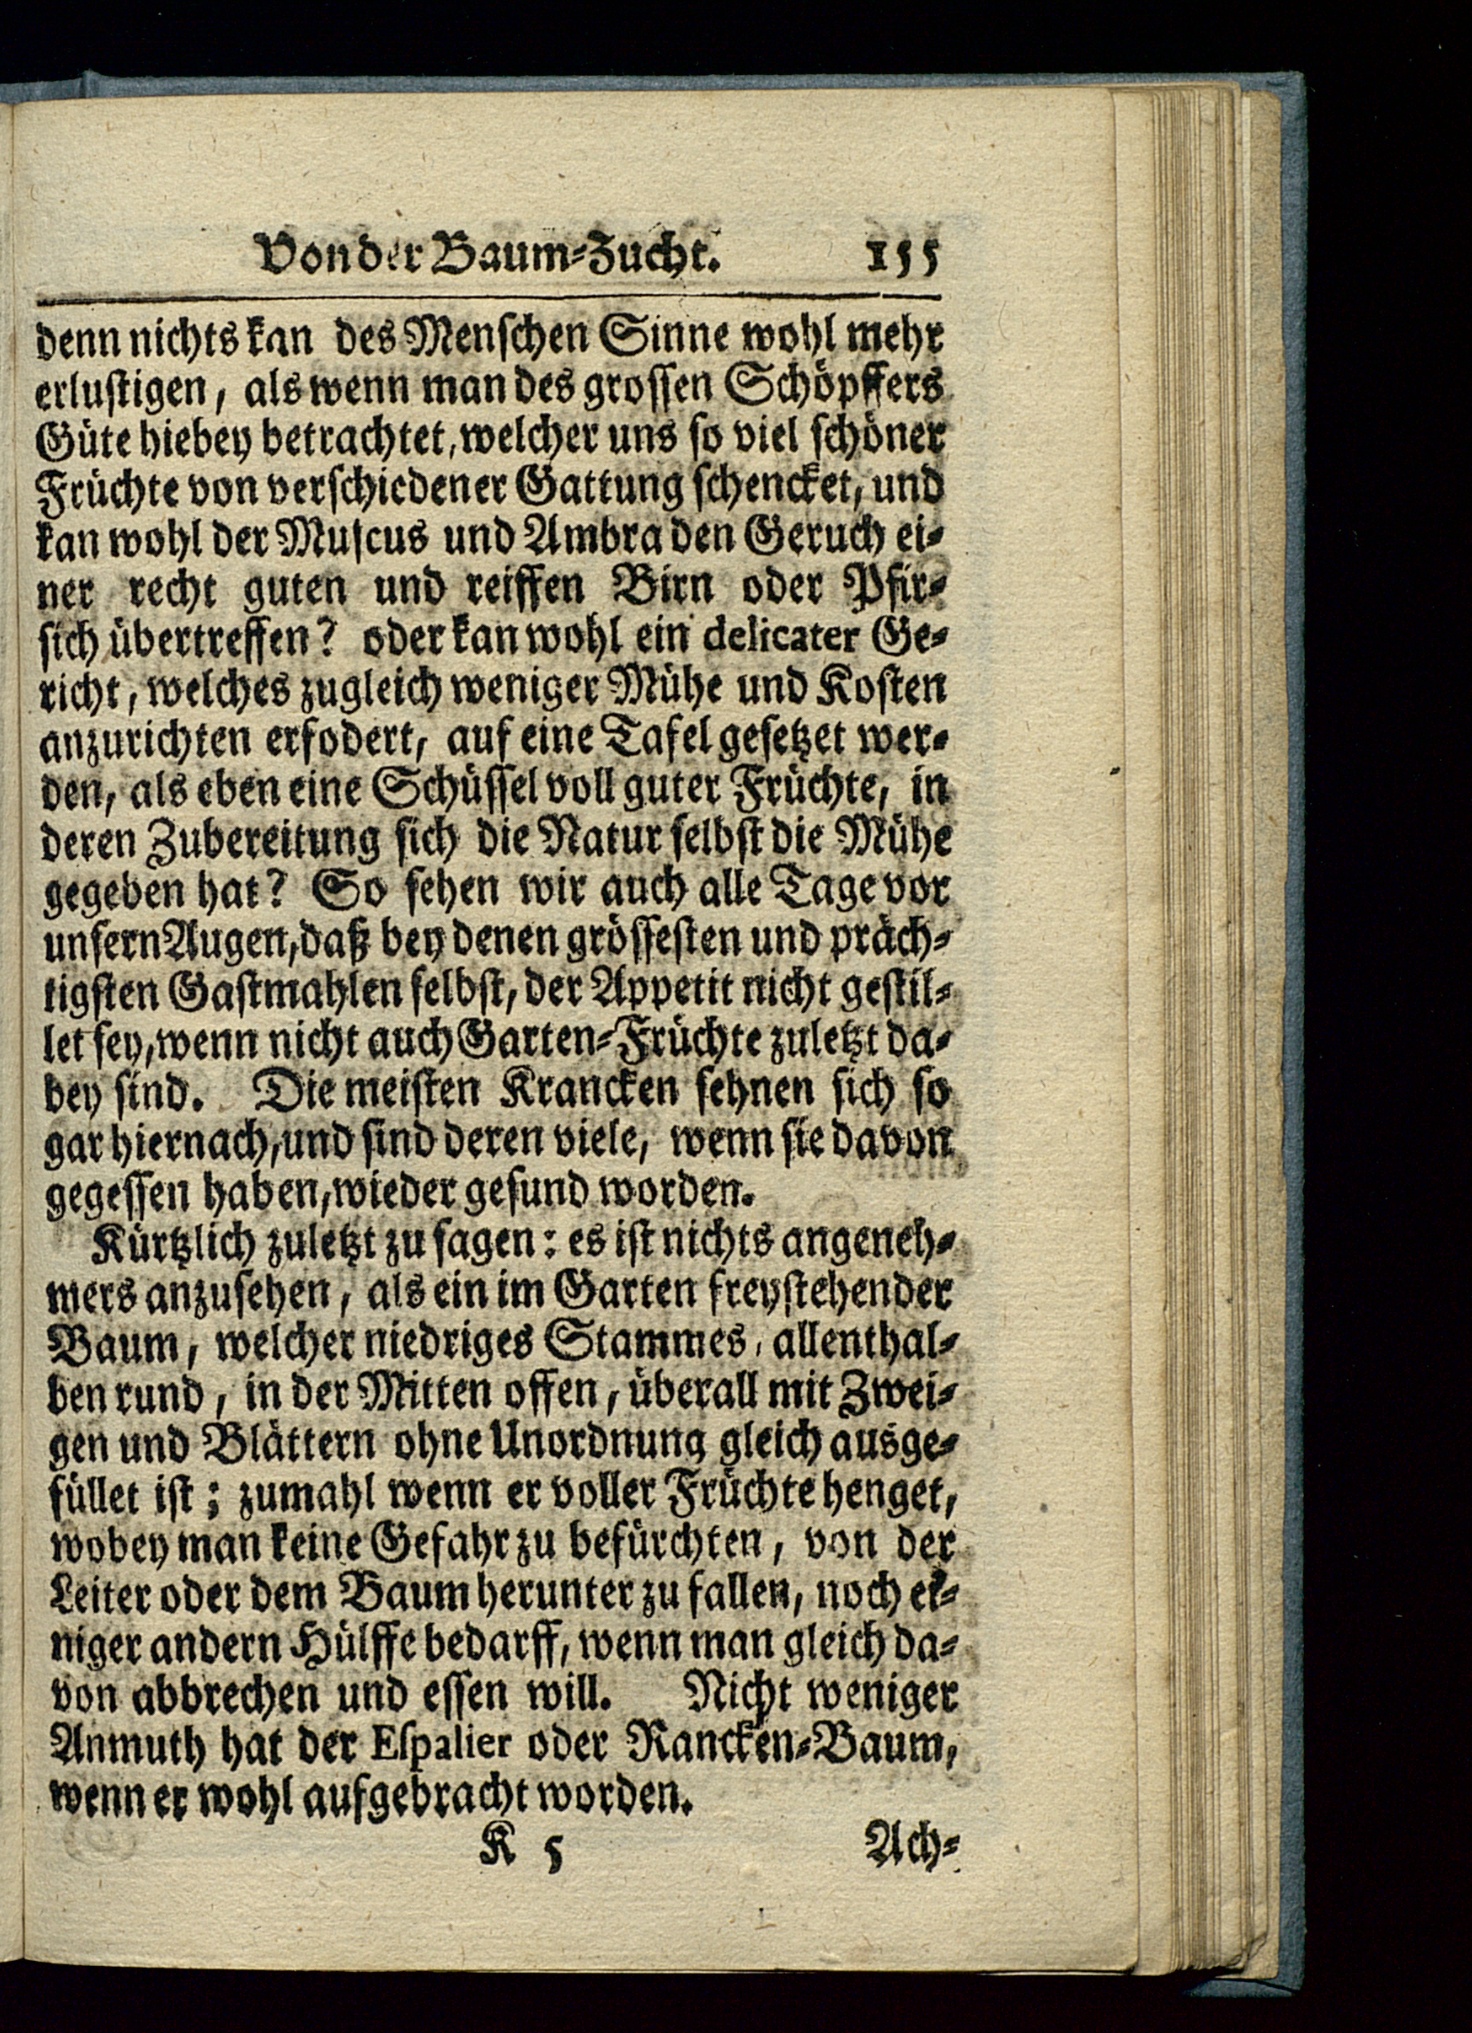 Von der Baum-Zucht. 155
denn nichts kan des Menschen Sinne wohl mehr
erlustigen, als wenn man des grossen Schöpffers
Güte hiebey betrachtet, welcher uns so viel schöner
Früchte von verschiedener Gattung schencket, und
kan wohl der Muscus und Ambra den Geruch ei-
ner recht guten und reiffen Birn oder Pfir-
sich übertreffen? oder kan wohl ein delicater Ge-
richt, welches zugleich weniger Mühe und Kosten
anzurichten erfodert, auf eine Tafel gesetzet wer-
den, als eben eine Schüssel voll guter Früchte, in
deren Zubereitung sich die Natur selbst die Mühe
gegeben hat? So sehen wir auch alle Tage vor
unsern Augen, daß bey denen grössesten und präch-
tigsten Gastmahlen selbst, der Appetit nicht gestil-
let sey, wenn nicht auch Garten-Früchte zuletzt da-
bey sind. Die meisten Krancken sehnen sich so
gar hiernach, und sind deren viele, wenn sie davon
gegessen haben, wieder gesund worden.
Kürtzlich zuletzt zu sagen: es ist nichts angeneh-
mers anzusehen, als ein im Garten freystehender
Baum, welcher niedriges Stammes, allenthal-
ben rund, in der Mitten offen, überall mit Zwei-
gen und Blättern ohne Unordnung gleich ausge-
füllet ist; zumahl wenn er voller Früchte henget,
wobey man keine Gefahr zu befürchten, von der
Leiter oder dem Baum herunter zu fallen, noch ei-
niger andern Hülffe bedarff, wenn man gleich da-
von abbrechen und essen will. Nicht weniger
Anmuth hat der Espalier oder Rancken-Baum,
wenn er wohl aufgebracht worden.
K 5 Ach-